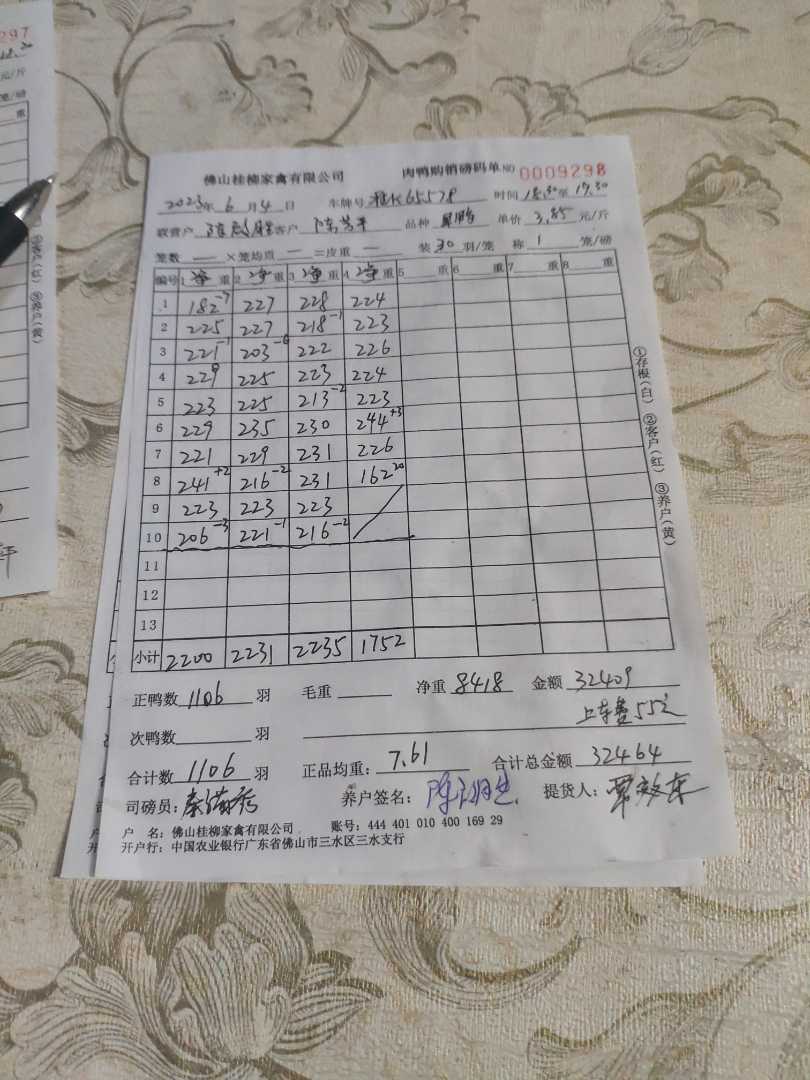 297
元/斤
笼/磅
重
佛山桂柳家禽有限公司 肉鸭购销磅码单 NO 0009298
2023年 6月 4日 车牌号 65578 时间 15.30至 17.30
联营户 客户 陈芳平 品种 鸭 单价 3.85 元/斤
笼数 — ×笼均重 — =皮重 — 装 30 羽/笼 称 1 笼/磅
编号 1 净重 2 净重 3 净重 4 净重 5 重 6 重 7 重 8 重
1 182-7 227 228 224
2 225 227 218-1 223
3 221-1 203-6 222 226
4 229 225 223 224
5 223 225 213-2 223
6 229 235 230 244+3
7 221 229 231 226
8 241+2 216-2 231 162 20
9 223 223 223
10 206-3 221-1 216-2
11
12
13
小计 2200 2231 2235 1752
①存根(白) ②客户(红) ③养户(黄)
正鸭数 1106 羽 毛重 净重 8418 金额 32409
上车费55元
次鸭数 羽
合计数 1106 羽 正品均重: 7.61 合计总金额 32464
司磅员: 养户签名: 提货人:
户 名: 佛山桂柳家禽有限公司 账号: 444 401 010 400 169 29
开户行: 中国农业银行广东省佛山市三水区三水支行